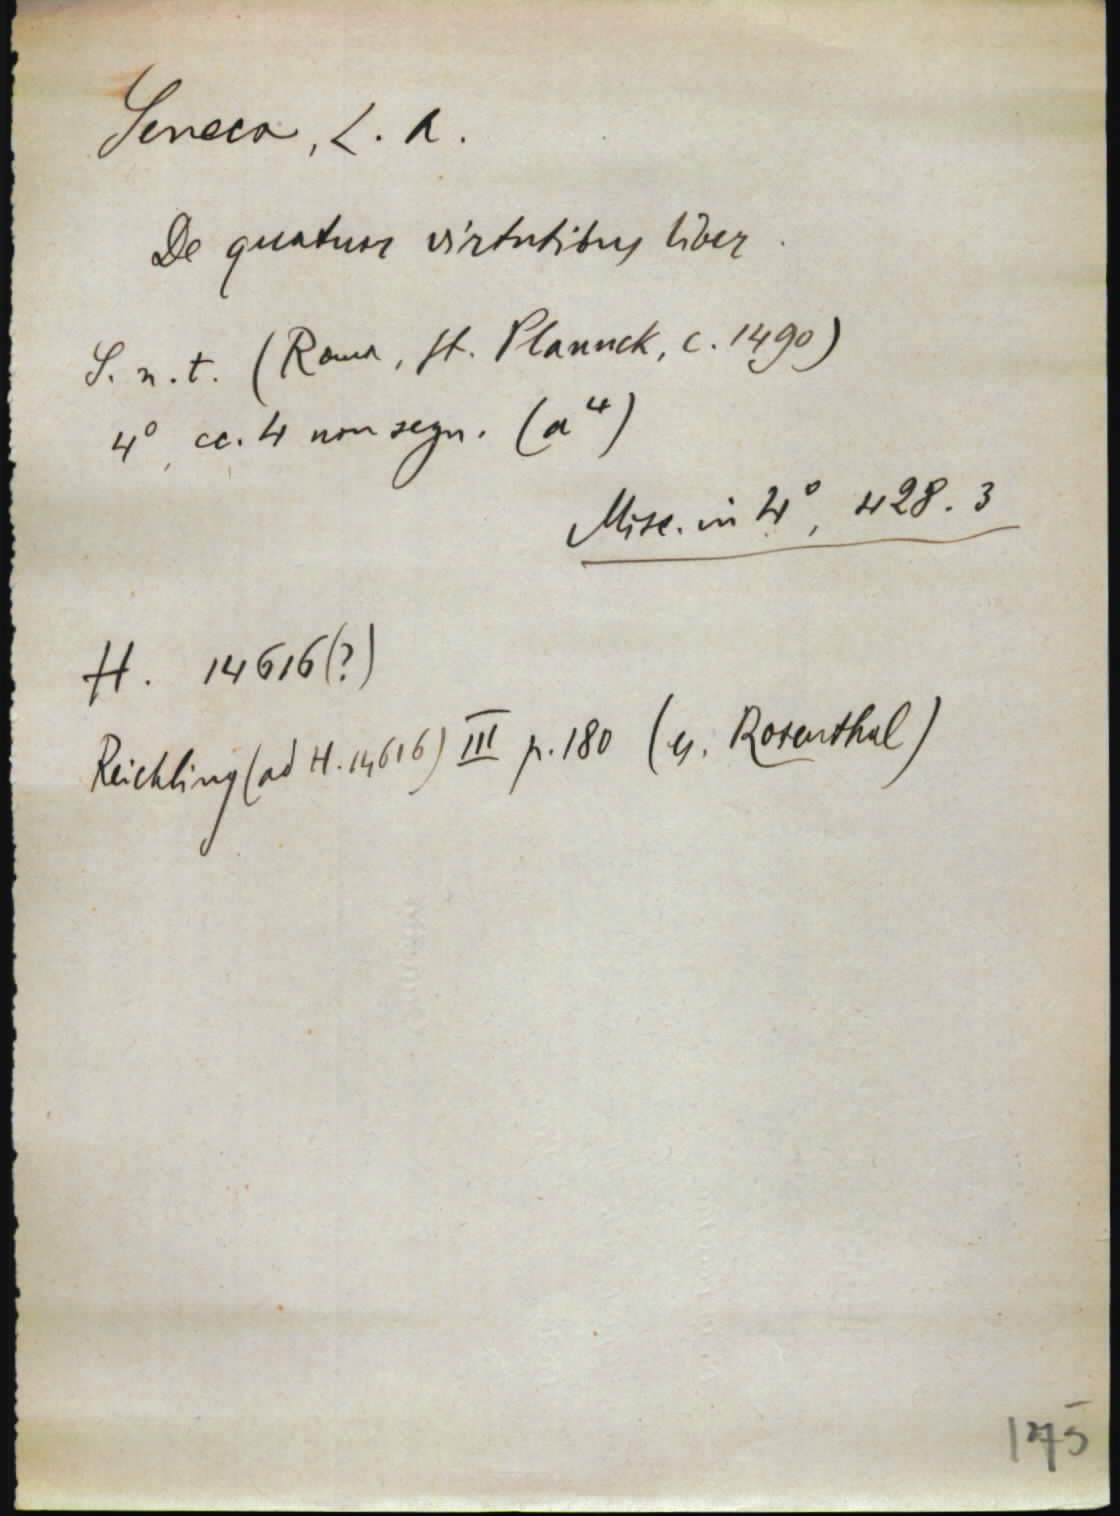 Seneca, L. A.
De quatuor virtutibus liber.
S. n. t. (Roma, St. Plannck, c. 1490)
4°, cc. 4 non segn. (a⁴)
Misc. in 4°, 428. 3
H. 14616(?)
Reichling (ad H. 14616) III p. 180 (es. Rosenthal)
175